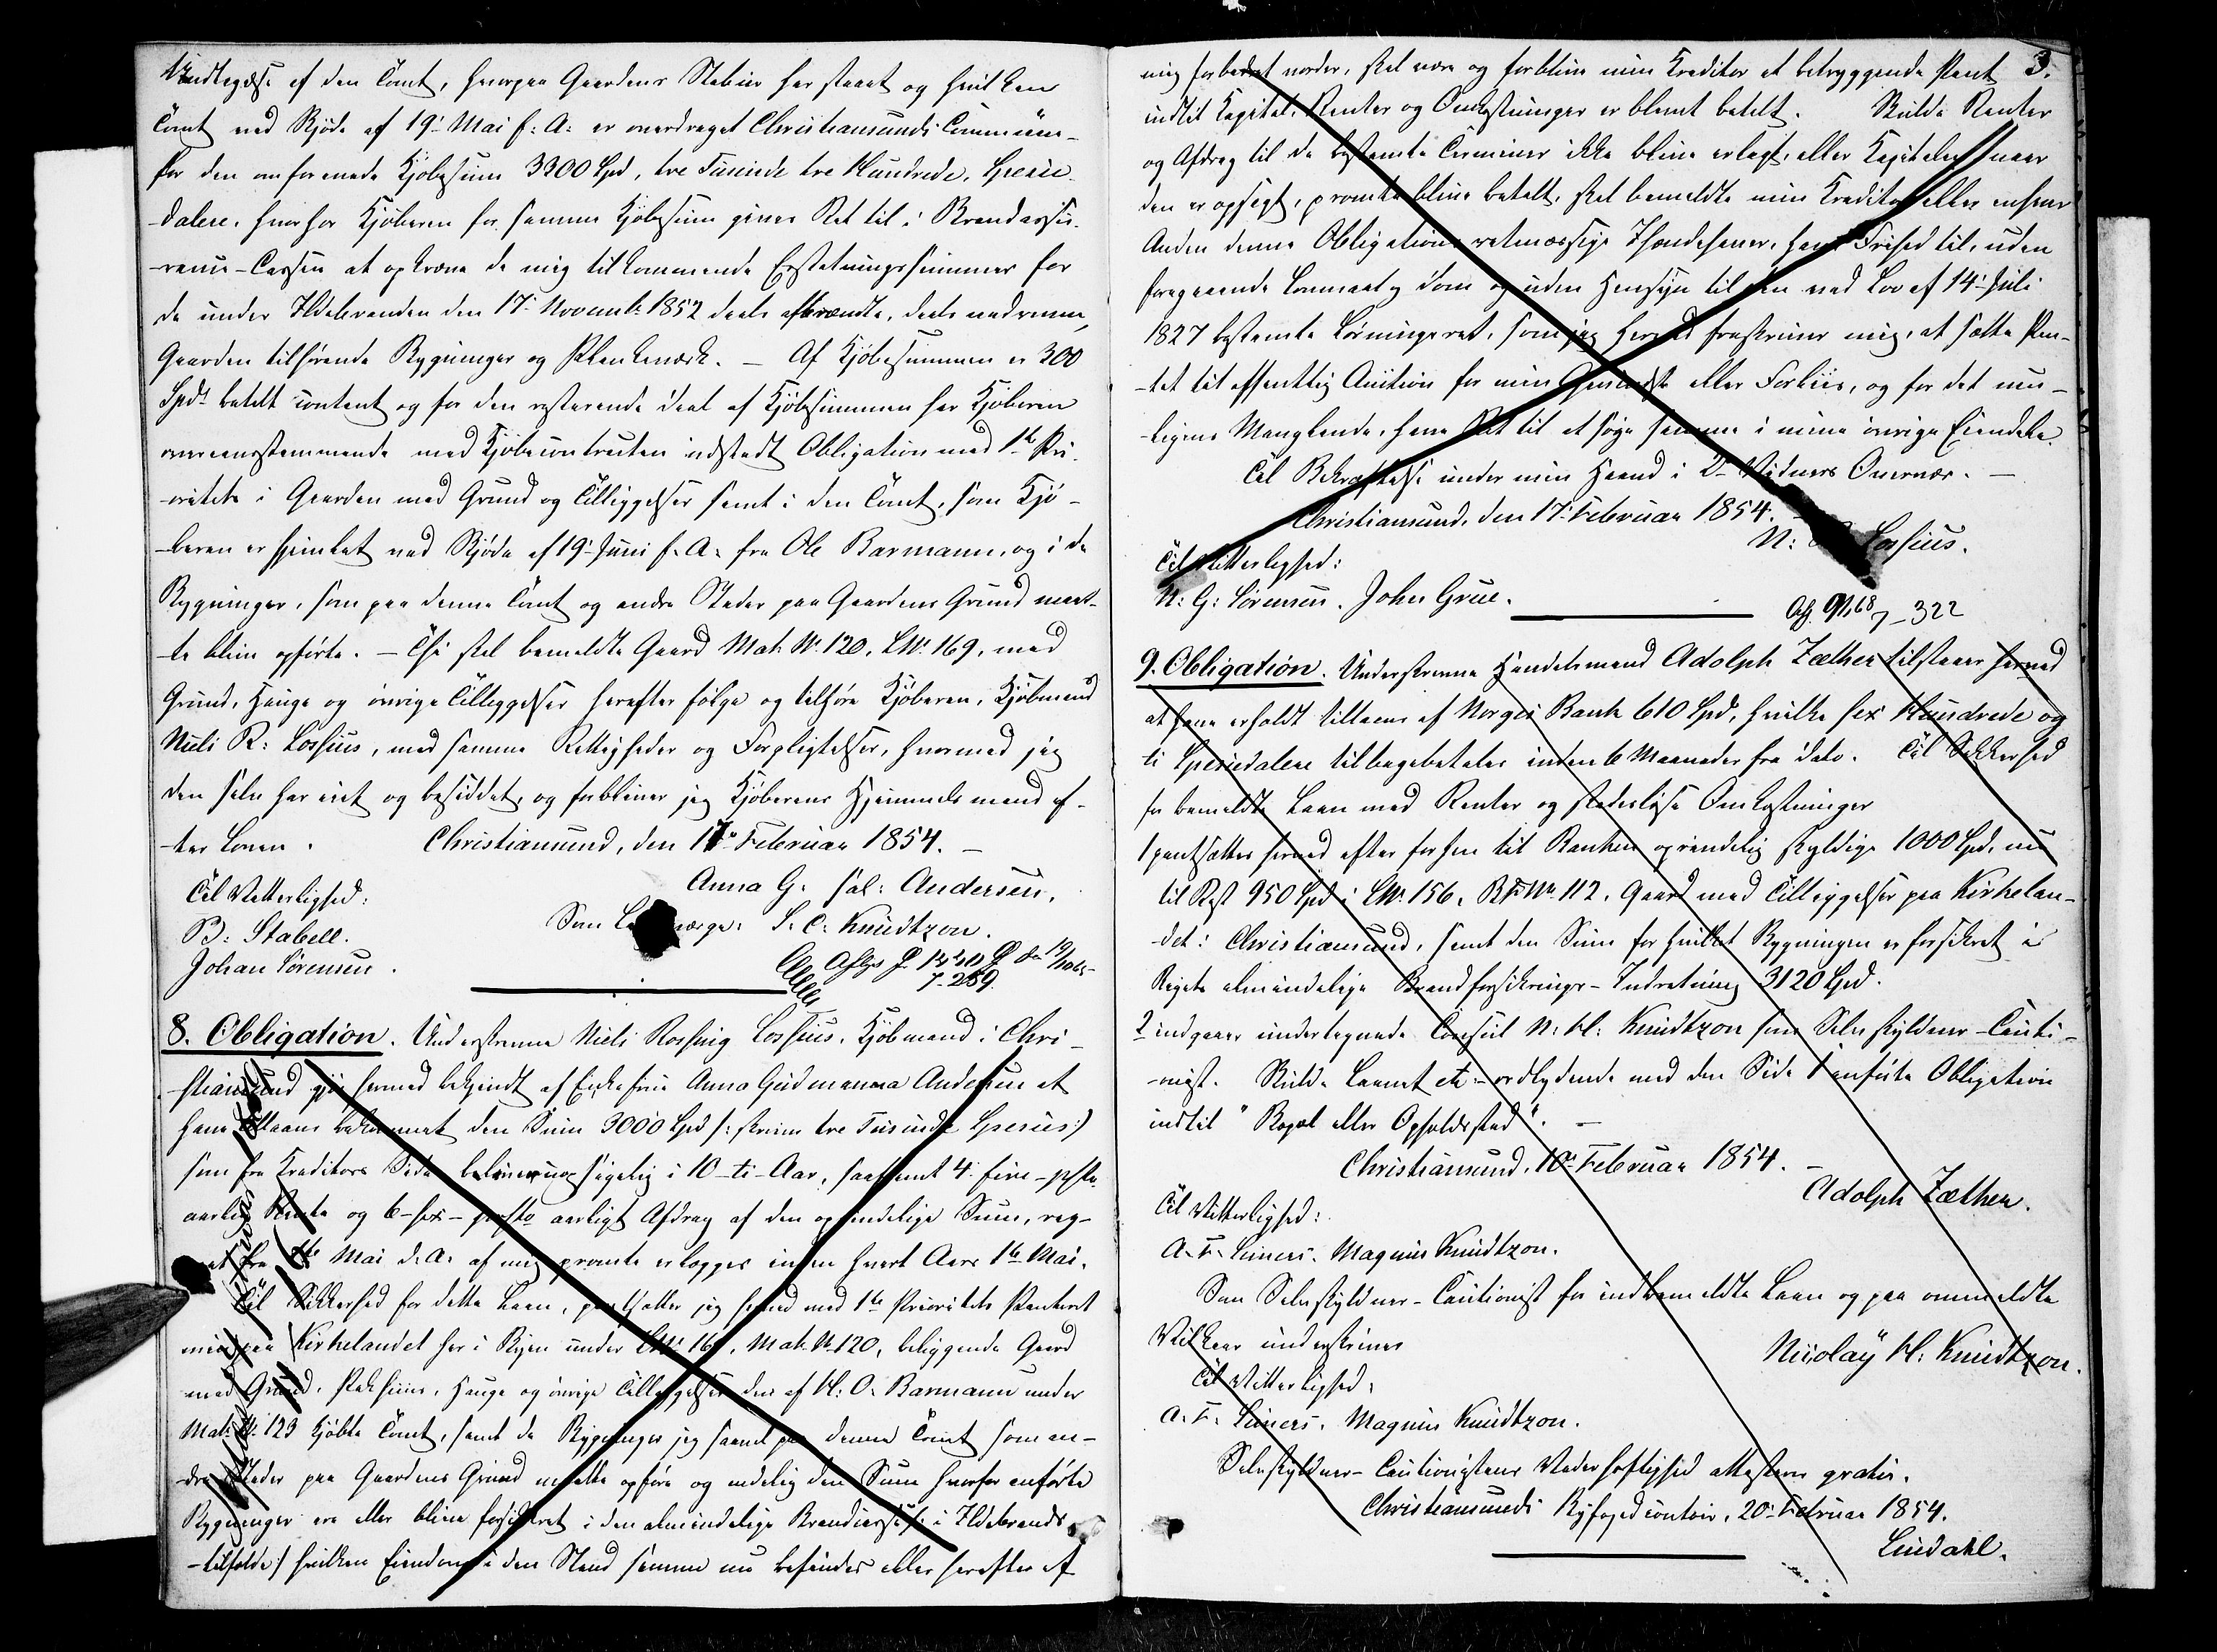 Undtagelse af den Tomt, hvorpaa Gaardens Stabur har staaet og hvilken
Tomt ved Skjøde af 19. Mai f: A: er overdraget Christiansunds Commune
for den omforenede Kjøbesum 3300 Spd, tre Tusinde tre Hundrede, Specie-
-dalere, hvorhos Kjøberen for samme Kjøbesum gives Ret til i Brandassu-
-rance-Cassen at opkræve de mig tilkommende Erstatningssummer for
de under Ildebranden den 17. Novembr 1852 deels afbrændte, deels nedrevne,
Gaarden tilhørende Bygninger og Plankeværk. – Af Kjøbesummen er 300
Spd betalt contant og for den resterende Deel af Kjøbesummen har Kjøberen
overeensstemmende med Kjøbecontracten udstedt Obligation med 1ste Pri-
-oritet i Gaarden med Grund og Tilliggelser samt i den Tomt, som Kjø-
-beren er hjemlet ved Skjøde af 19. Juni f. A. fra Ole Barmann, og i de
Bygninger, som paa denne Tomt og andre Steder paa Gaardens Grund maat-
-te blive opførte. – Thi skal bemeldte Gaard Mat. No. 120, LNo. 169, med
Grund, Hauge og øvrige Tilleggelser herefter følge og tilhøre Kjøberen, Kjøbmand
Niels R: Lossius, med samme Rettigheder og Forpligtelser, hvormed jeg
den selv har eiet og besiddet, og forbliver jeg Kjøberens Hjemmelsmand ef-
-ter Loven. Christiansund, den 17. Februar 1854. –
Anna G. sal: Andersen.
Til Vitterlighed:
Som L værge: S. C. Knudtzon.
B: Stabell.
Johan Sørensen.
7-289.
8. Obligation. Underskrevne Niels Rossing Lossius, Kjøbmand i Chri-
-stiansund gjør hermed bekjendt af Enkefrue Anna Gudmanna Andersen at
have tillaans bekommet den Sum 3000 Spd /: skriver tre Tusinde Species :/
som fra Kreditors Side bliver uopsigelig i 10 – ti – Aar, saafremt 4. fire – pCto.
aarlig Rente og 6 – sex – procto aarligt Afdrag af den oprindelige Sum, reg-
-net fra 1te Mai d. A. af mig promte erlægges inden hvert Aars 1te Mai.
Til Sikkerhed for dette Laan, pantsætter jeg herved med 1ste Prioritets Panteret
min paa Kirkelandet her i Byen under LNo. 169, Mat. No. 120, beliggende Gaard
med Grund, Pakhuus, Hauge og øvrige Tilleggelser, den af H: O: Barmann under
Mat: No. 123 kjøbte Tomt, samt de Bygninger jeg saavel paa denne Tomt som an-
-dre Steder paa Gaardens Grund maatte opføre og endelig den Sum hvorfor anførte
Bygninger ere eller blive forsikkret i den almindelige Brandcasse /: i Ildebrands-
-tilfælde :/ hvilken Eiendom i den Stand samme nu befindes eller herefter af
mig forbedret vorder, skal være og forblive min Kreditor et betryggende Pant 3.
indtil Kapital, Renter og Omkostninger er blevet betalt. Skulde Renter
og Afdrag til de bestemte Terminer ikke blive erlagt, eller Kapitalen naar
den er opsagt, promte blive betalt, skal bemeldte min Kreditor eller enhver
Anden denne Obligations retmæssige Ihændehaver, have Frihed til, uden
foregaaende Lovmaal og Dom og uden Hensyn til den ved Lov af 14. Juli
1827 bestemte Løsningsret, som jeg herved fraskriver mig, at sætte Pan-
-tet til offentlig Auction for min Gevindst eller Forliis, og for det mu-
-ligens Manglende, have Ret til at søge samme i mine øvrige Eiendele.
Til Bekræftelse under min Haand i 2 Vidners Overvær. –
Christiansund, den 17. Februar 1854. –
N: Lossius.
Til Vitterlighed:
N: G: Sørensen. John Grue.
7-322
9. Obligation. Underskrevne Handelsmand Adolph Zæther tilstaaer herved
at have erholdt tillaans af Norges Bank 610 Spd, hvilke sex Hundrede og
ti Speciedalere tilbagebetales inden 6 Maaneder fra Dato. Til Sikkerhed
for bemeldte Laan med Renter og skadesløse Omkostninger
1 pantsættes herved efter forhen til Banken oprindelig skyldige 1000 Spd, nu
til Rest 950 Spd i LNo. 156, BFNo. 112, Gaard med Tilliggelser paa Kirkelan-
-det i Christiansund, samt den Sum for hvilket Bygningen er forsikret i
Rigets almindelige Brandforsikrings-Indretning 3120 Spd.
2 indgaaer undertegnede Consul N: H: Knudtzon som Selvskyldner-Cauti-
-onist. Skulde Laanet etc – ordlydende med den Side 1 anførte Obligation
indtil "Bopæl eller Opholdssted". –
Christiansund, 10. Februar 1854. –
Adolph Zæther.
Til Vitterlighed:
A. F. Leiners. Magnus Knudtzon.
Som Selvskyldner-Cautionist for indbemeldte Laan og paa ommeldte
Vilkaar underskriver
Nicolay H: Knudtzon.
Til Vitterlighed:
A. F. Leiners. Magnus Knudtzon.
Selvskyldner-Cautionistens Vederhæftighed attesteres gratis.
Christiansunds Byfogedcontoir, 20. Februar 1854.
Lindahl.